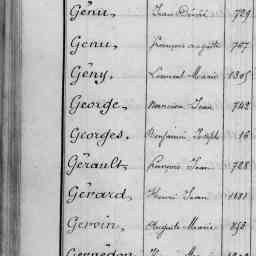 Génu, Jean Désiré 729
Genu, François auguste 767
Gény, Laurent Marie 1305
George, Jean 742
Georges, Benjamin Joseph 16
Gérault, François Jean 728
Gérard, Henri Jean 1181
Gervin, Auguste Marie